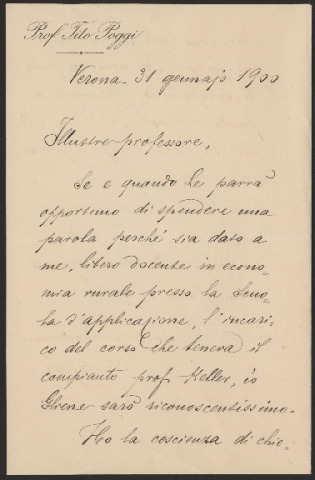 Prof. Tito Poggi
Verona - 31 gennajo 1900
Illustre professore,
Se e quando Le parrà
opportuno di spendere una
parola perché sia dato a
me, libero docente in econo-
mia rurale presso la Scuo-
la d'applicazione, l'incari-
co del corso che teneva il
compianto prof. Keller, io
Gliene sarò riconoscentissimo.
Ho la coscienza di chie-